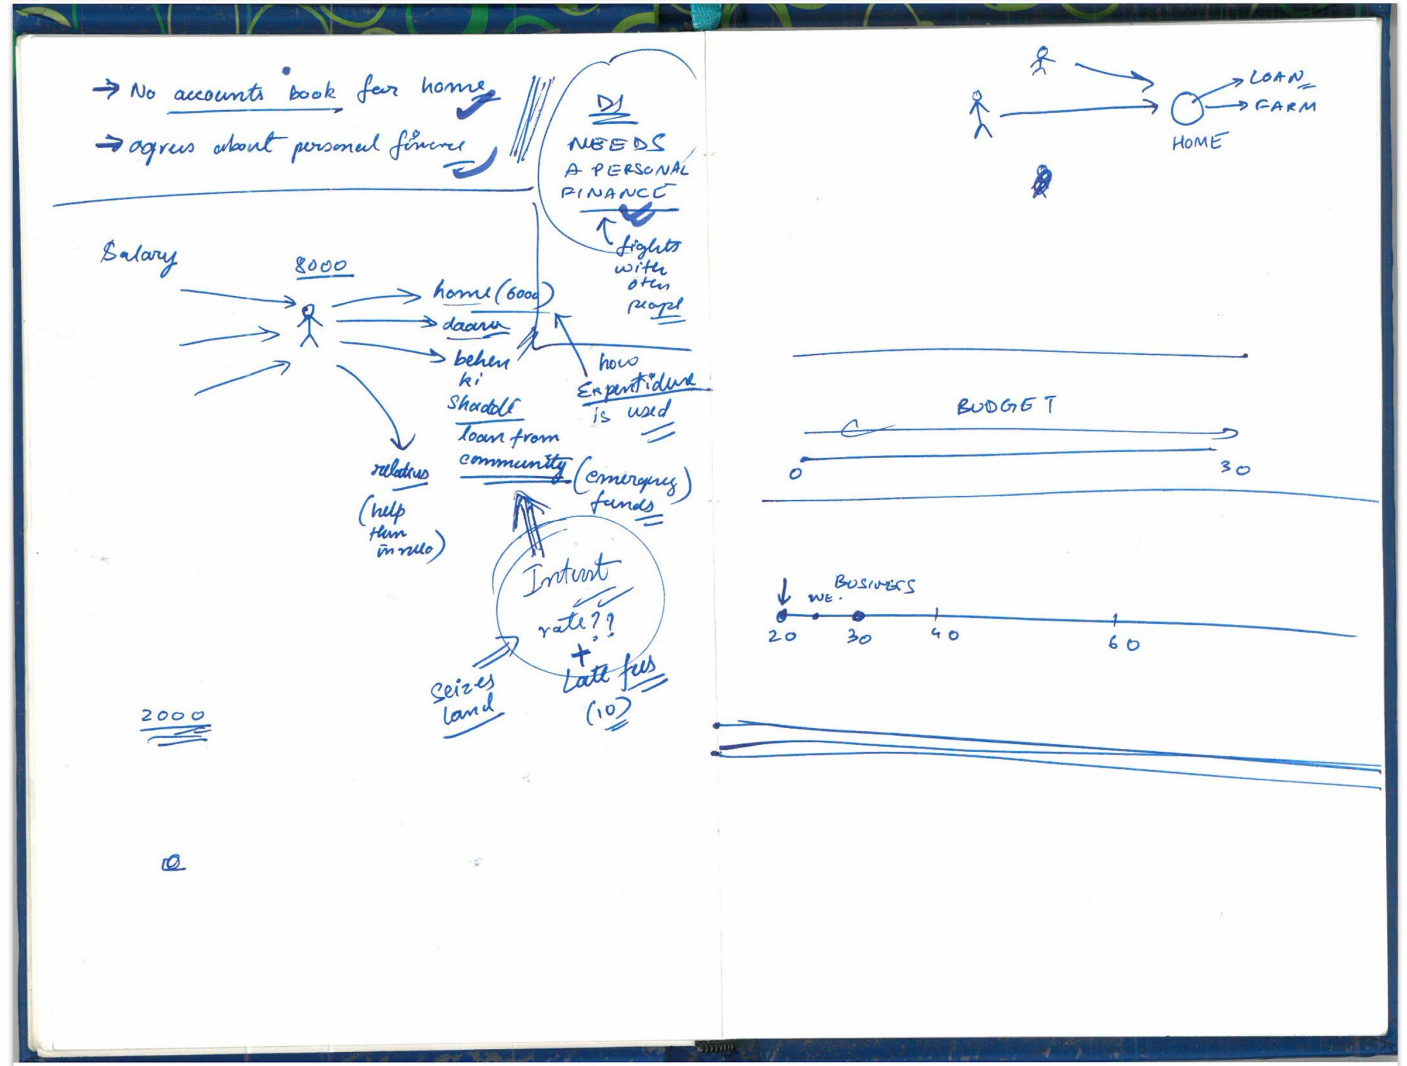 → No accounts book for home
→ agrees about personal finance
DJ
NEEDS
A PERSONAL
FINANCE
fights
with
other
people
Salary
8000
home (6000)
daaru
behen
ki
shaddi
loan from
community
(emergency
funds)
how
Expentidure
is used
relatives
(help
them
in need)
Interest
rate??
+
Late fees
(10)
Seizes
land
2000
LOAN
FARM
HOME
BUDGET
0 30
BUSINESS
20 30 40 60